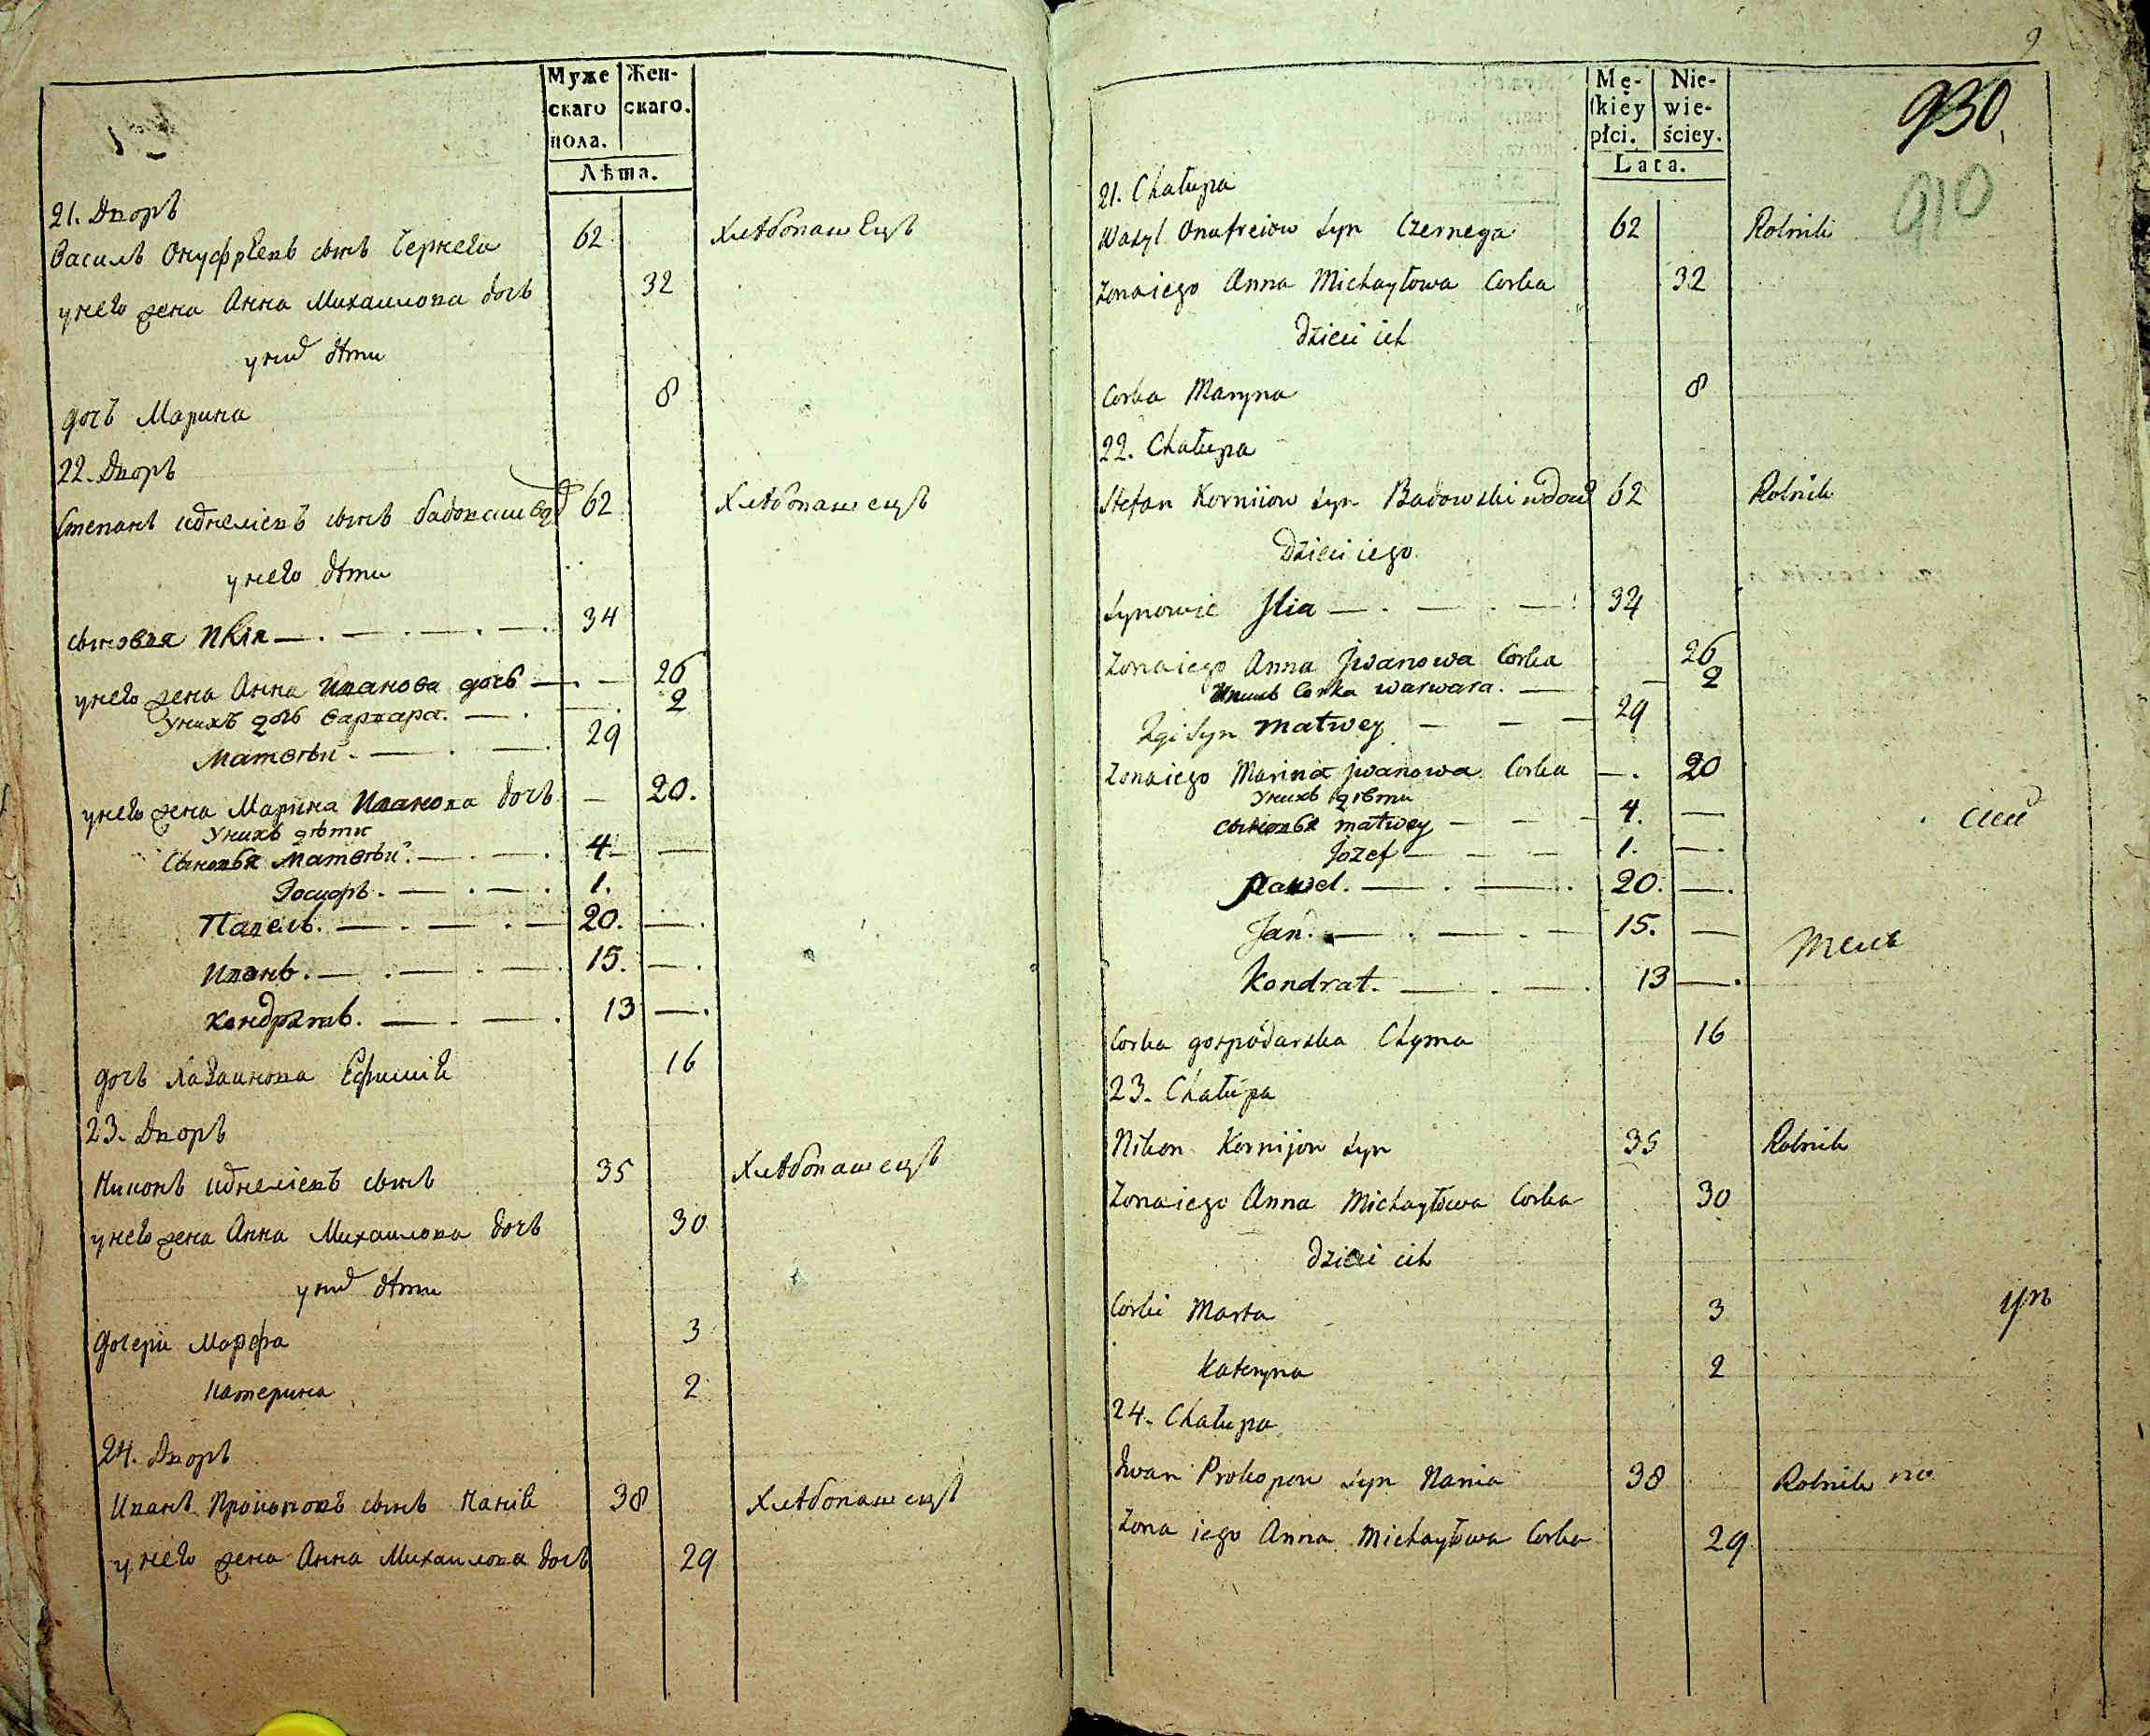 Муже Жен-
скаго скаго.
пола.
Лѣта.
21. Дворъ
Василь Онуфріевъ сынъ Чернега 62 хлѣбопашецъ
у него жена Анна Михаилова дочь 32
у них дѣти
дочь Марина 8
22. Дворъ
Степанъ сынъ бадовски 62 хлѣбопашецъ
у него дѣти
сыновья Илія — . — . — . — . 34
у него жена Анна Иванова дочь — . — 26
Унихъ дочь варвара. — . — . 2
Матвѣй. — . — . 29
у него жена Марина Иванова дочь — 20.
Унихъ дѣти
Сыновья Матвѣй. — . — . 4 —
Іосифъ. — . — . 1.
Павелъ. — . — . — 20. — .
Иванъ. — . — . — . 15. — .
Кондратъ. — . — . 13 — .
дочь хазаинова 16
23. Дворъ
Никонъ сынъ 35 хлѣбопашецъ
у него жена Анна Михаилова дочь 30
у них дѣти
дочери Марфа 3
Катерина 2
24. Дворъ
Иванъ Прокоповъ сынъ 38 хлѣбопашецъ
у него жена Анна Михаилова дочь 29
9
Mę- Nie-
ſkiey wie-
płci. ściey.
Lata.
930
910
21. Chałupa
Wasyl Onufreiow syn Czernega 62 Rolnik
Zona iego Anna Michayłowa Corka 32
dzieci ich
Corka Maryna 8
22. Chałupa
Stefan Korniiow syn Badowski wdow 62 Rolnik
Dzieci iego
Synowie Ilia — . — . — . 34
Zona iego Anna Jwanowa Corka 26
Унихъ Corka warwara. — . — 2
syn matwey — — — 29
Zona iego Marina jwanowa Corka — . 20
Унихъ дѣти
Сыновья matwey — — — 4. —
Jozef — — — 1. — .
Pawel. — . — . 20. — .
Jan. — . — . — 15. —
Kondrat. — . — . 13 — .
Corka gospodarska Chyma 16
23. Chałupa
Nikon Kornijow syn 35 Rolnik
Zona iego Anna Michayłowa Corka 30
dzieci ich
Corki Marta 3
Kateryna 2
24. Chałupa
Iwan Prokopow syn Nania 38 Rolnik
Zona iego Anna Michayłowa Corka 29